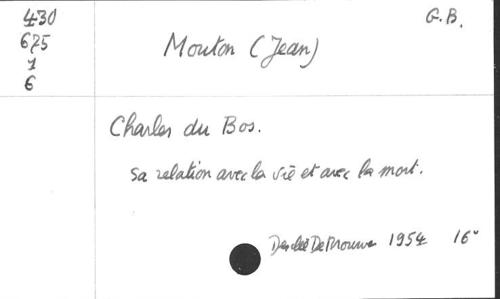 430
675
1
6
Mouton (Jean)
G.B.
Charles du Bos.
Sa relation avec la vie et avec la mort.
Desclée De Brouwer 1954 16°